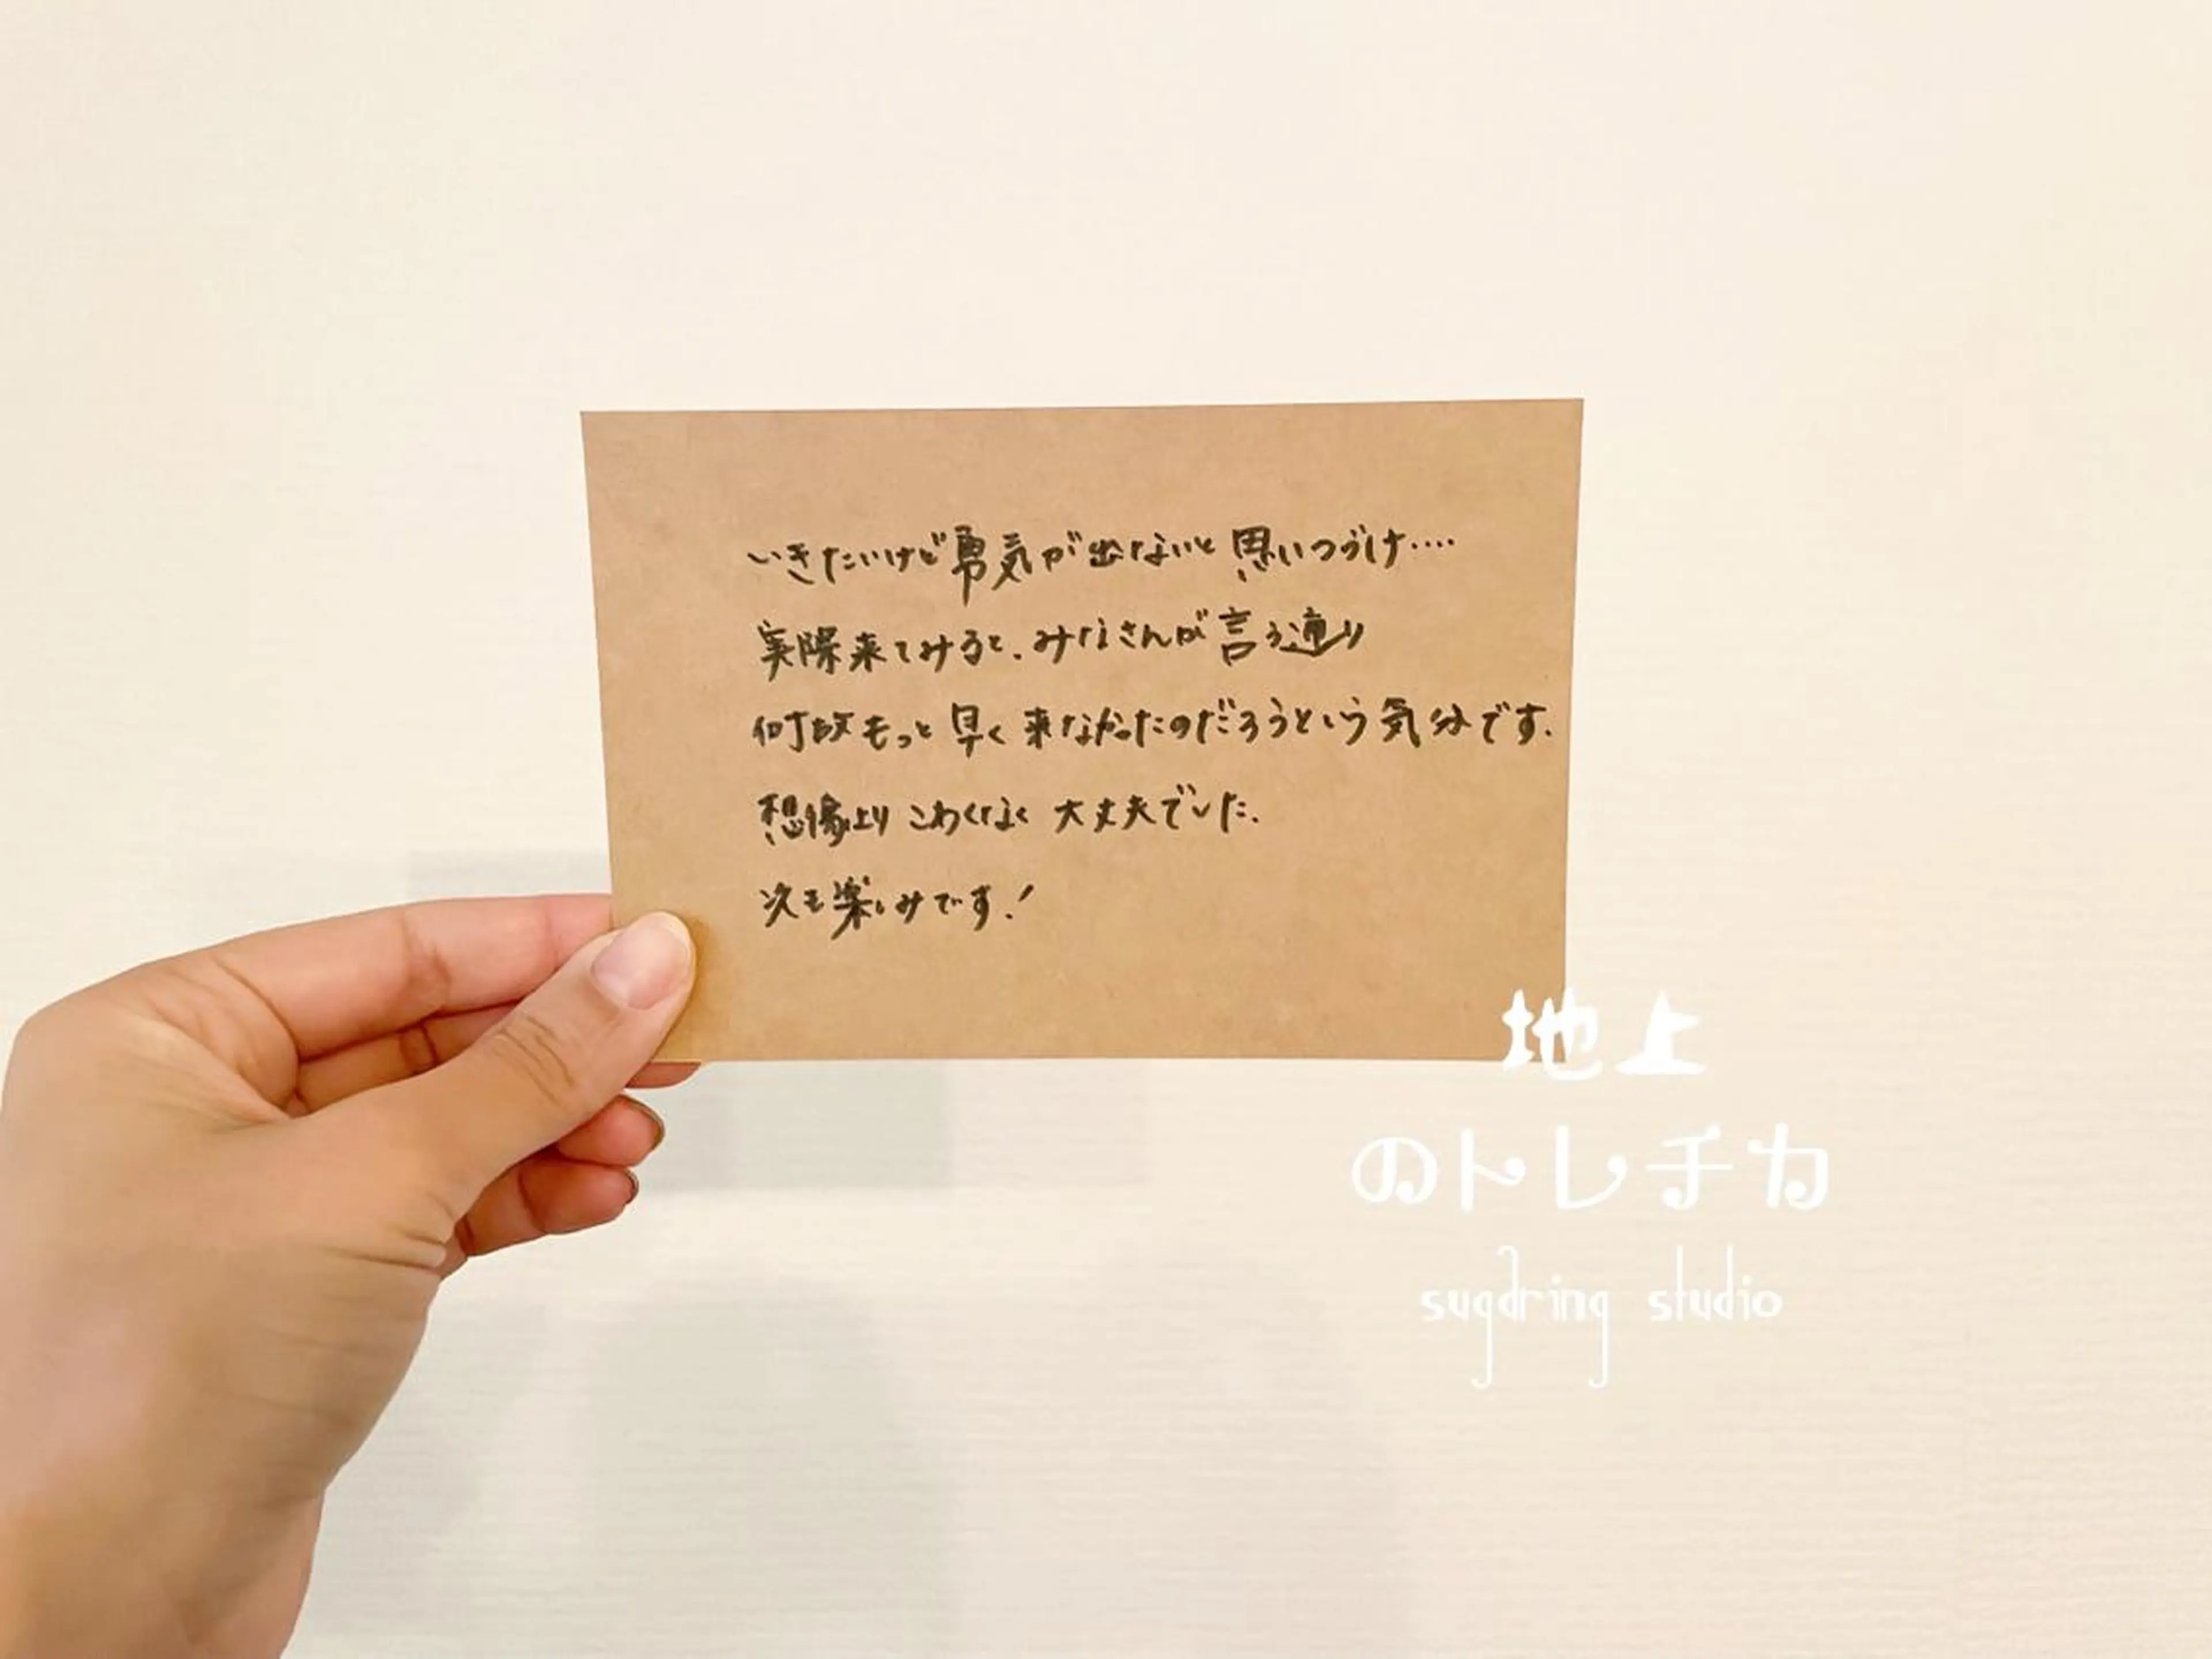 いきたいけど勇気が出ないと思いつづけ....
実際来てみると、みなさんが言う通り
何故もっと早く来なかったのだろうという気分です.
想像よりこわくなく大丈夫でした.
次も楽しみです!
地上
のトレチカ
sugaring studio